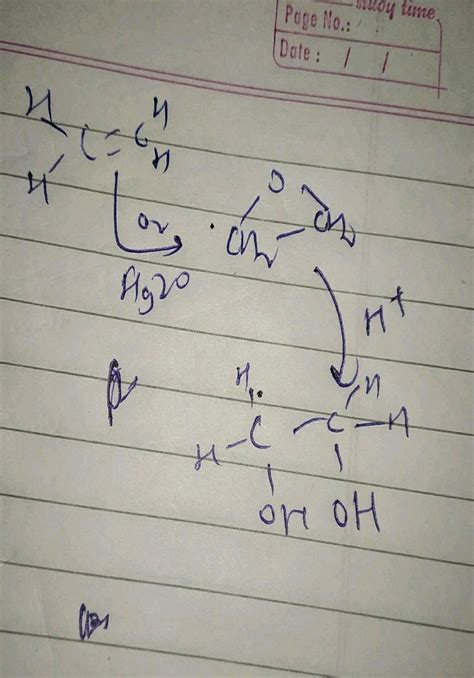 study time
Page No.:
Date : / /
H H
C = C
H H
O2
Ag2O
O
CH2 - CH2
H+
H H
H - C - C - H
OH OH